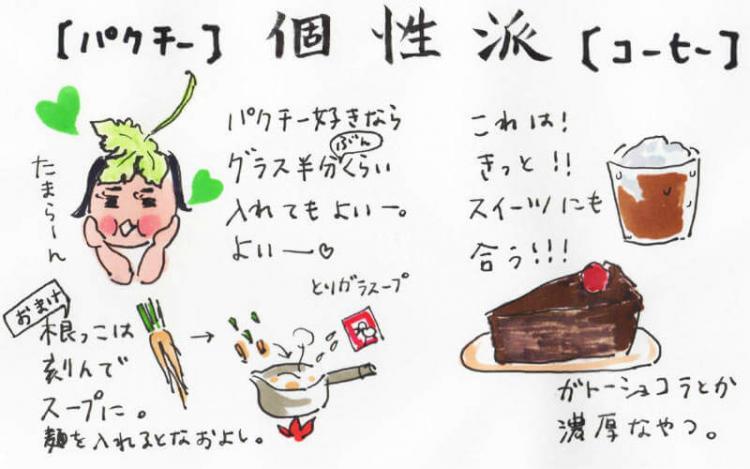 [パクチー] 個性派 [コーヒー]
たまらーん
パクチー好きなら
グラス半分くらい
ぶん
入れてもよいー。
よいー♡
これは!
きっと!!
スイーツにも
合う!!!
おまけ
根っこは
刻んで
スープに。
麺を入れるとなおよし。
とりガラスープ
ガトーショコラとか
濃厚なやつ。